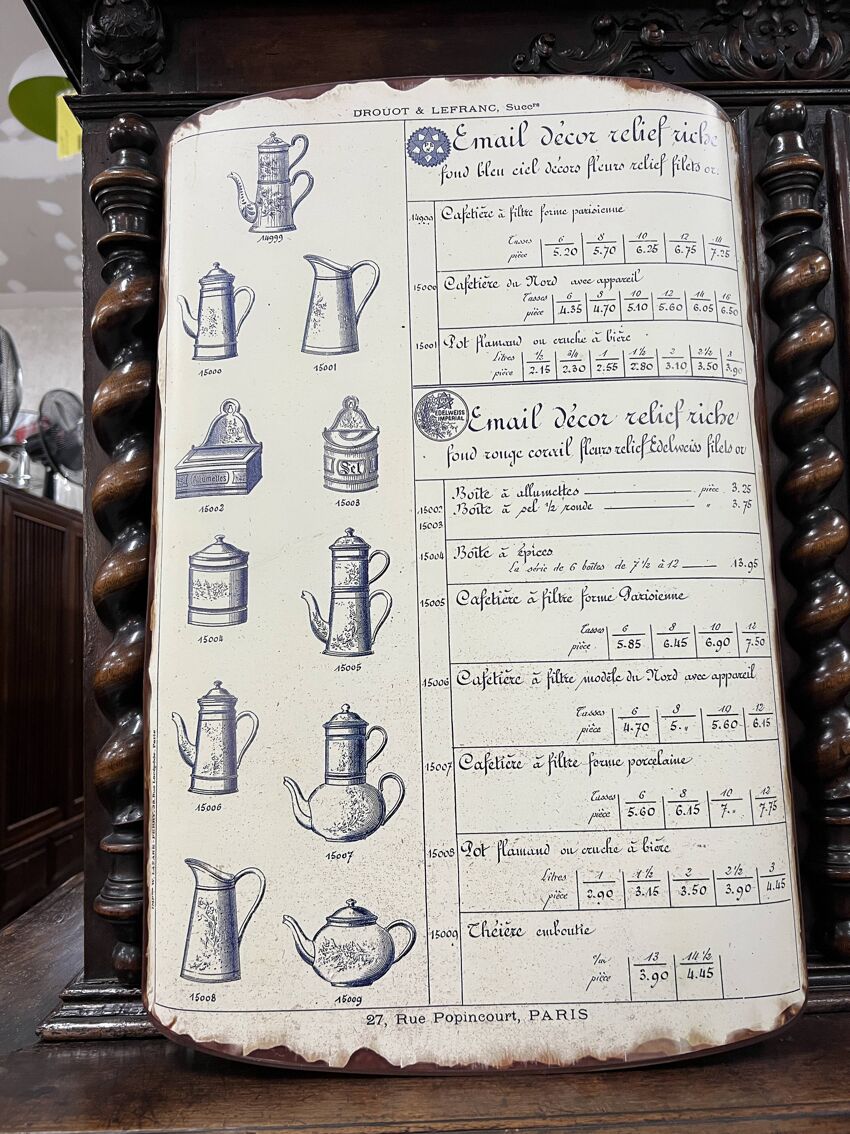 DROUOT & LEFRANC, Succrs
14999
15000
15001
Allumettes
15002
Sel
15003
15004
15005
15006
15007
15008
15009
Email décor relief riche
fond bleu ciel décors fleurs relief filets or.
14999 Cafetière à filtre forme parisienne
Tasses 6 8 10 12 14
pièce 5.20 5.70 6.25 6.75 7.25
15000 Cafetière du Nord avec appareil
Tasses 6 8 10 12 14 16
pièce 4.35 4.70 5.10 5.60 6.05 6.50
15001 Pot flamand ou cruche à bière
Litres 1/2 3/4 1 1 1/2 2 2 1/2 3
pièce 2.15 2.30 2.55 2.80 3.10 3.50 3.90
EDELWEISS
IMPERIAL
Email décor relief riche
fond rouge corail fleurs relief Edelweiss filets or
15002 Boîte à allumettes pièce 3.25
15003 Boîte à sel 1/2 ronde " 3.75
15004 Boîte à épices
La série de 6 boîtes de 7 1/2 à 12 13.95
15005 Cafetière à filtre forme Parisienne
Tasses 6 8 10 12
pièce 5.85 6.45 6.90 7.50
15006 Cafetière à filtre modèle du Nord avec appareil
Tasses 6 8 10 12
pièce 4.70 5.„ 5.60 6.15
15007 Cafetière à filtre forme porcelaine
Tasses 6 8 10 12
pièce 5.60 6.15 7.„ 7.75
15008 Pot flamand ou cruche à bière
Litres 1 1 1/2 2 2 1/2 3
pièce 2.90 3.15 3.50 3.90 4.45
15009 Théière emboutie
13 14 1/2
pièce 3.90 4.45
27, Rue Popincourt, PARIS